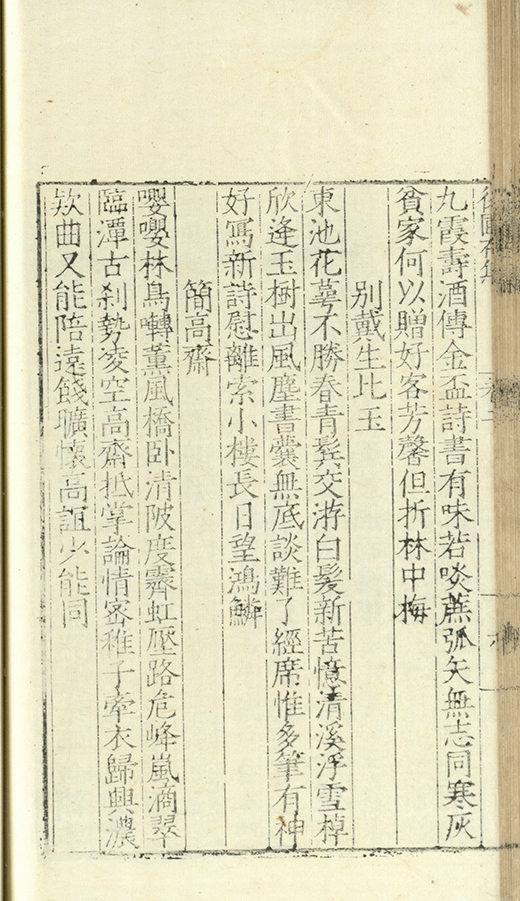 九霞壽酒傳金盃詩書有味若啖蔗弧矢無志同寒灰
貧家何以贈好客芳馨但折林中梅
別戴生比玉
東池花蕚不勝春青鬂交游白髮新苦憶清溪浮雪棹
欣逢玉樹出風塵書囊無底談難了經席惟多筆有神
好寫新詩慰離索小樓長日望鴻鱗
簡高齋
嚶嚶林鳥囀薰風橋卧清陂度霽虹壓路危峰嵐滴翠
臨潭古刹勢凌空高齋抵掌論情密稚子牽衣歸興濃
欵曲又能陪遠餞曠懷高誼少能同